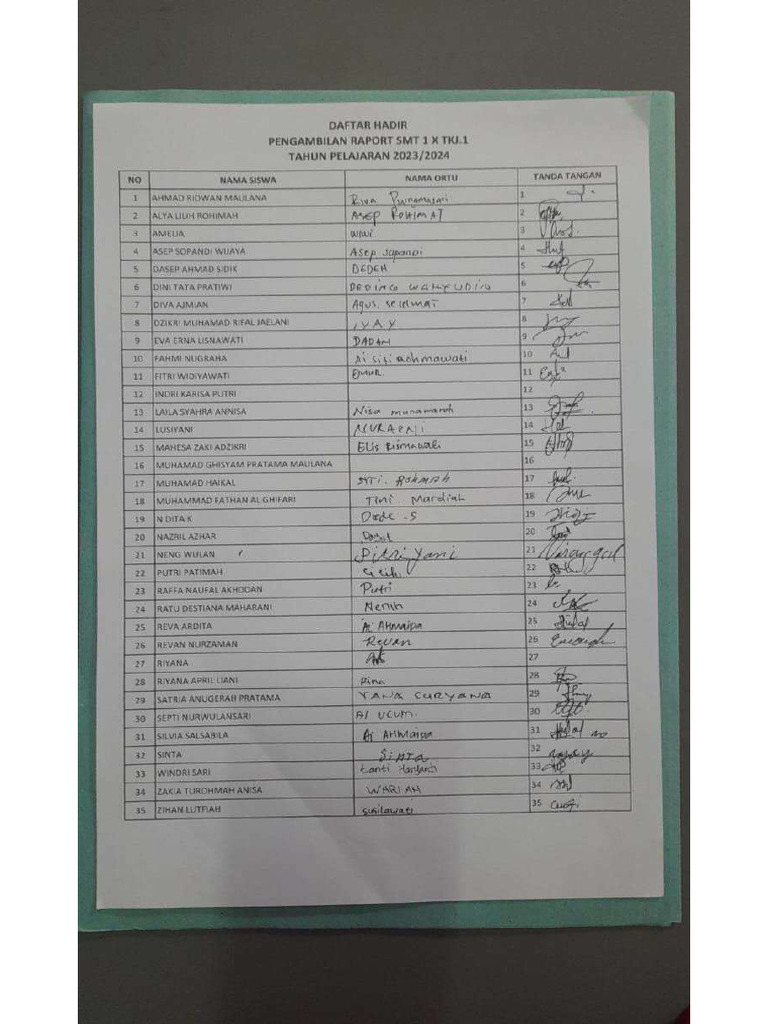 DAFTAR HADIR
PENGAMBILAN RAPORT SMT 1 X TKJ.1
TAHUN PELAJARAN 2023/2024
NO NAMA SISWA NAMA ORTU TANDA TANGAN
1 AHMAD RIDWAN MAULANA Riva Purnamasari 1
2 ALYA LILIH ROHIMAH ASEP ROHIMAT 2
3 AMELIA WAWI 3
4 ASEP SOPANDI WIJAYA Asep Sopandi 4
5 DASEP AHMAD SIDIK DEDEH 5
6 DINI TATA PRATIWI WAHYUDIN 6
7 DIVA AJMIAN Agus. Selamat 7
8 DZIKRI MUHAMAD RIFAL JAELANI IYAY 8
9 EVA ERNA LISNAWATI DADAN 9
10 FAHMI NUGRAHA Ai siti achmawati 10
11 FITRI WIDIYAWATI 11
12 INDRI KARISA PUTRI 12
13 LAILA SYAHRA ANNISA Nisa munawaroh 13
14 LUSIYANI NURAENI 14
15 MAHESA ZAKI ADZIKRI Elis Rismawati 15
16 MUHAMAD GHISYAM PRATAMA MAULANA 16
17 MUHAMAD HAIKAL Siti. Rohmah 17
18 MUHAMMAD FATHAN AL GHIFARI Tini Mardiah 18
19 N DITA K Dede .S 19
20 NAZRIL AZHAR 20
21 NENG WULAN Pitriyani 21
22 PUTRI PATIMAH Cicih 22
23 RAFFA NAUFAL AKHDDAN Putri 23
24 RATU DESTIANA MAHARANI Nenih 24
25 REVA ARDITA Ai Atmaisa 25
26 REVAN NURZAMAN Revan 26
27 RIYANA 27
28 RIYANA APRIL LIANI Rina 28
29 SATRIA ANUGERAH PRATAMA YANA SURYANA 29
30 SEPTI NURWULANSARI AI UCUM. 30
31 SILVIA SALSABILA Ai Atmaisa 31
32 SINTA Sinta 32
33 WINDRI SARI Tanti Haryanti 33
34 ZAKIA TUROHMAH ANISA WARIAH 34
35 ZIHAN LUTFIAH Susilawati 35